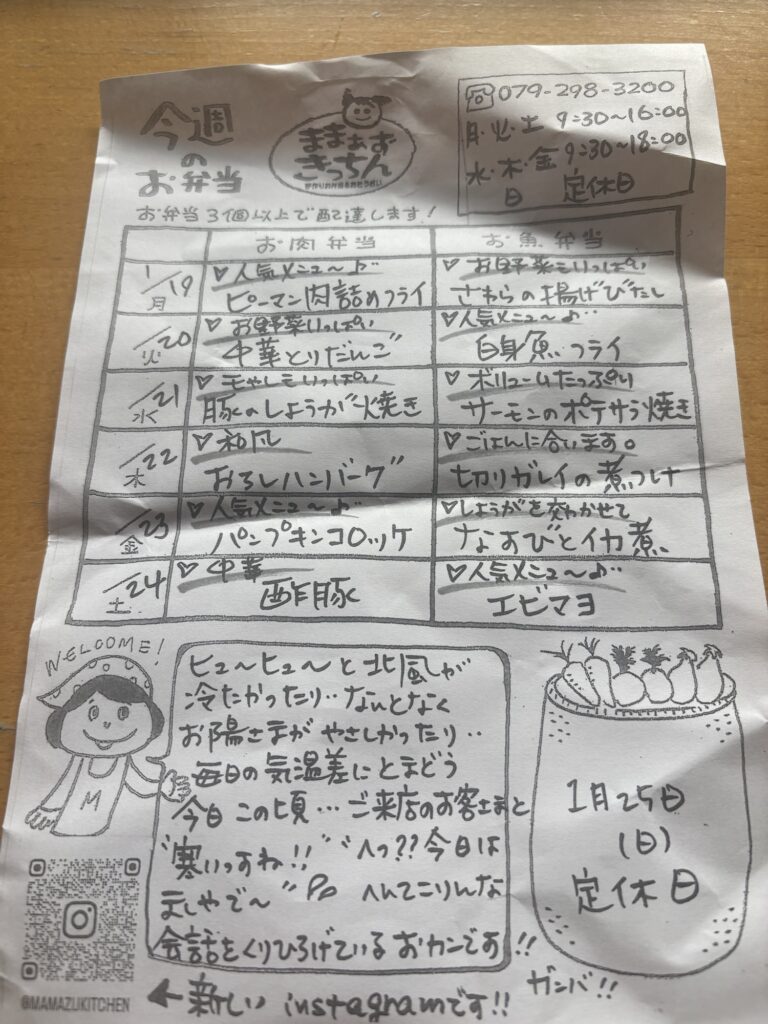 今週
の
お弁当
ままぁず
きっちん
手作りお弁当&おそうざい
☎079-298-3200
月・火・土 9:30～16:00
水・木・金 9:30～18:00
日 定休日
お弁当3個以上で配達します!
お肉弁当
お魚弁当
1/19
月
♡人気メニュ～♪
ピーマン肉詰めフライ
♡お野菜もいっぱい
さわらの揚げびたし
/20
火
♡お野菜いっぱい
中華とりだんご
♡人気メニュ～♪
白身魚フライ
/21
水
♡もやしもいっぱい
豚のしょうが焼き
♡ボリュームたっぷり
サーモンのポテサラ焼き
/22
木
♡和風
おろしハンバーグ
♡ごはんに合います。
切りガレイの煮つけ
/23
金
♡人気メニュ～♪
パンプキンコロッケ
♡しょうがを効かせて
なすびとイカ煮
/24
土
♡中華
酢豚
♡人気メニュ～♪
エビマヨ
WELCOME!
M
ヒュ～ヒュ～と北風が
冷たかったり‥なんとなく
お陽さまがやさしかったり‥
毎日の気温差にとまどう
今日この頃…ご来店のお客さまと
"寒いっすね!!" "へっ??今日は
ましやで～" へんてこりんな
会話をくりひろげているおカンです!!
ガンバ!!
1月25日
(日)
定休日
@MAMAZUKITCHEN
←新しい instagramです!!